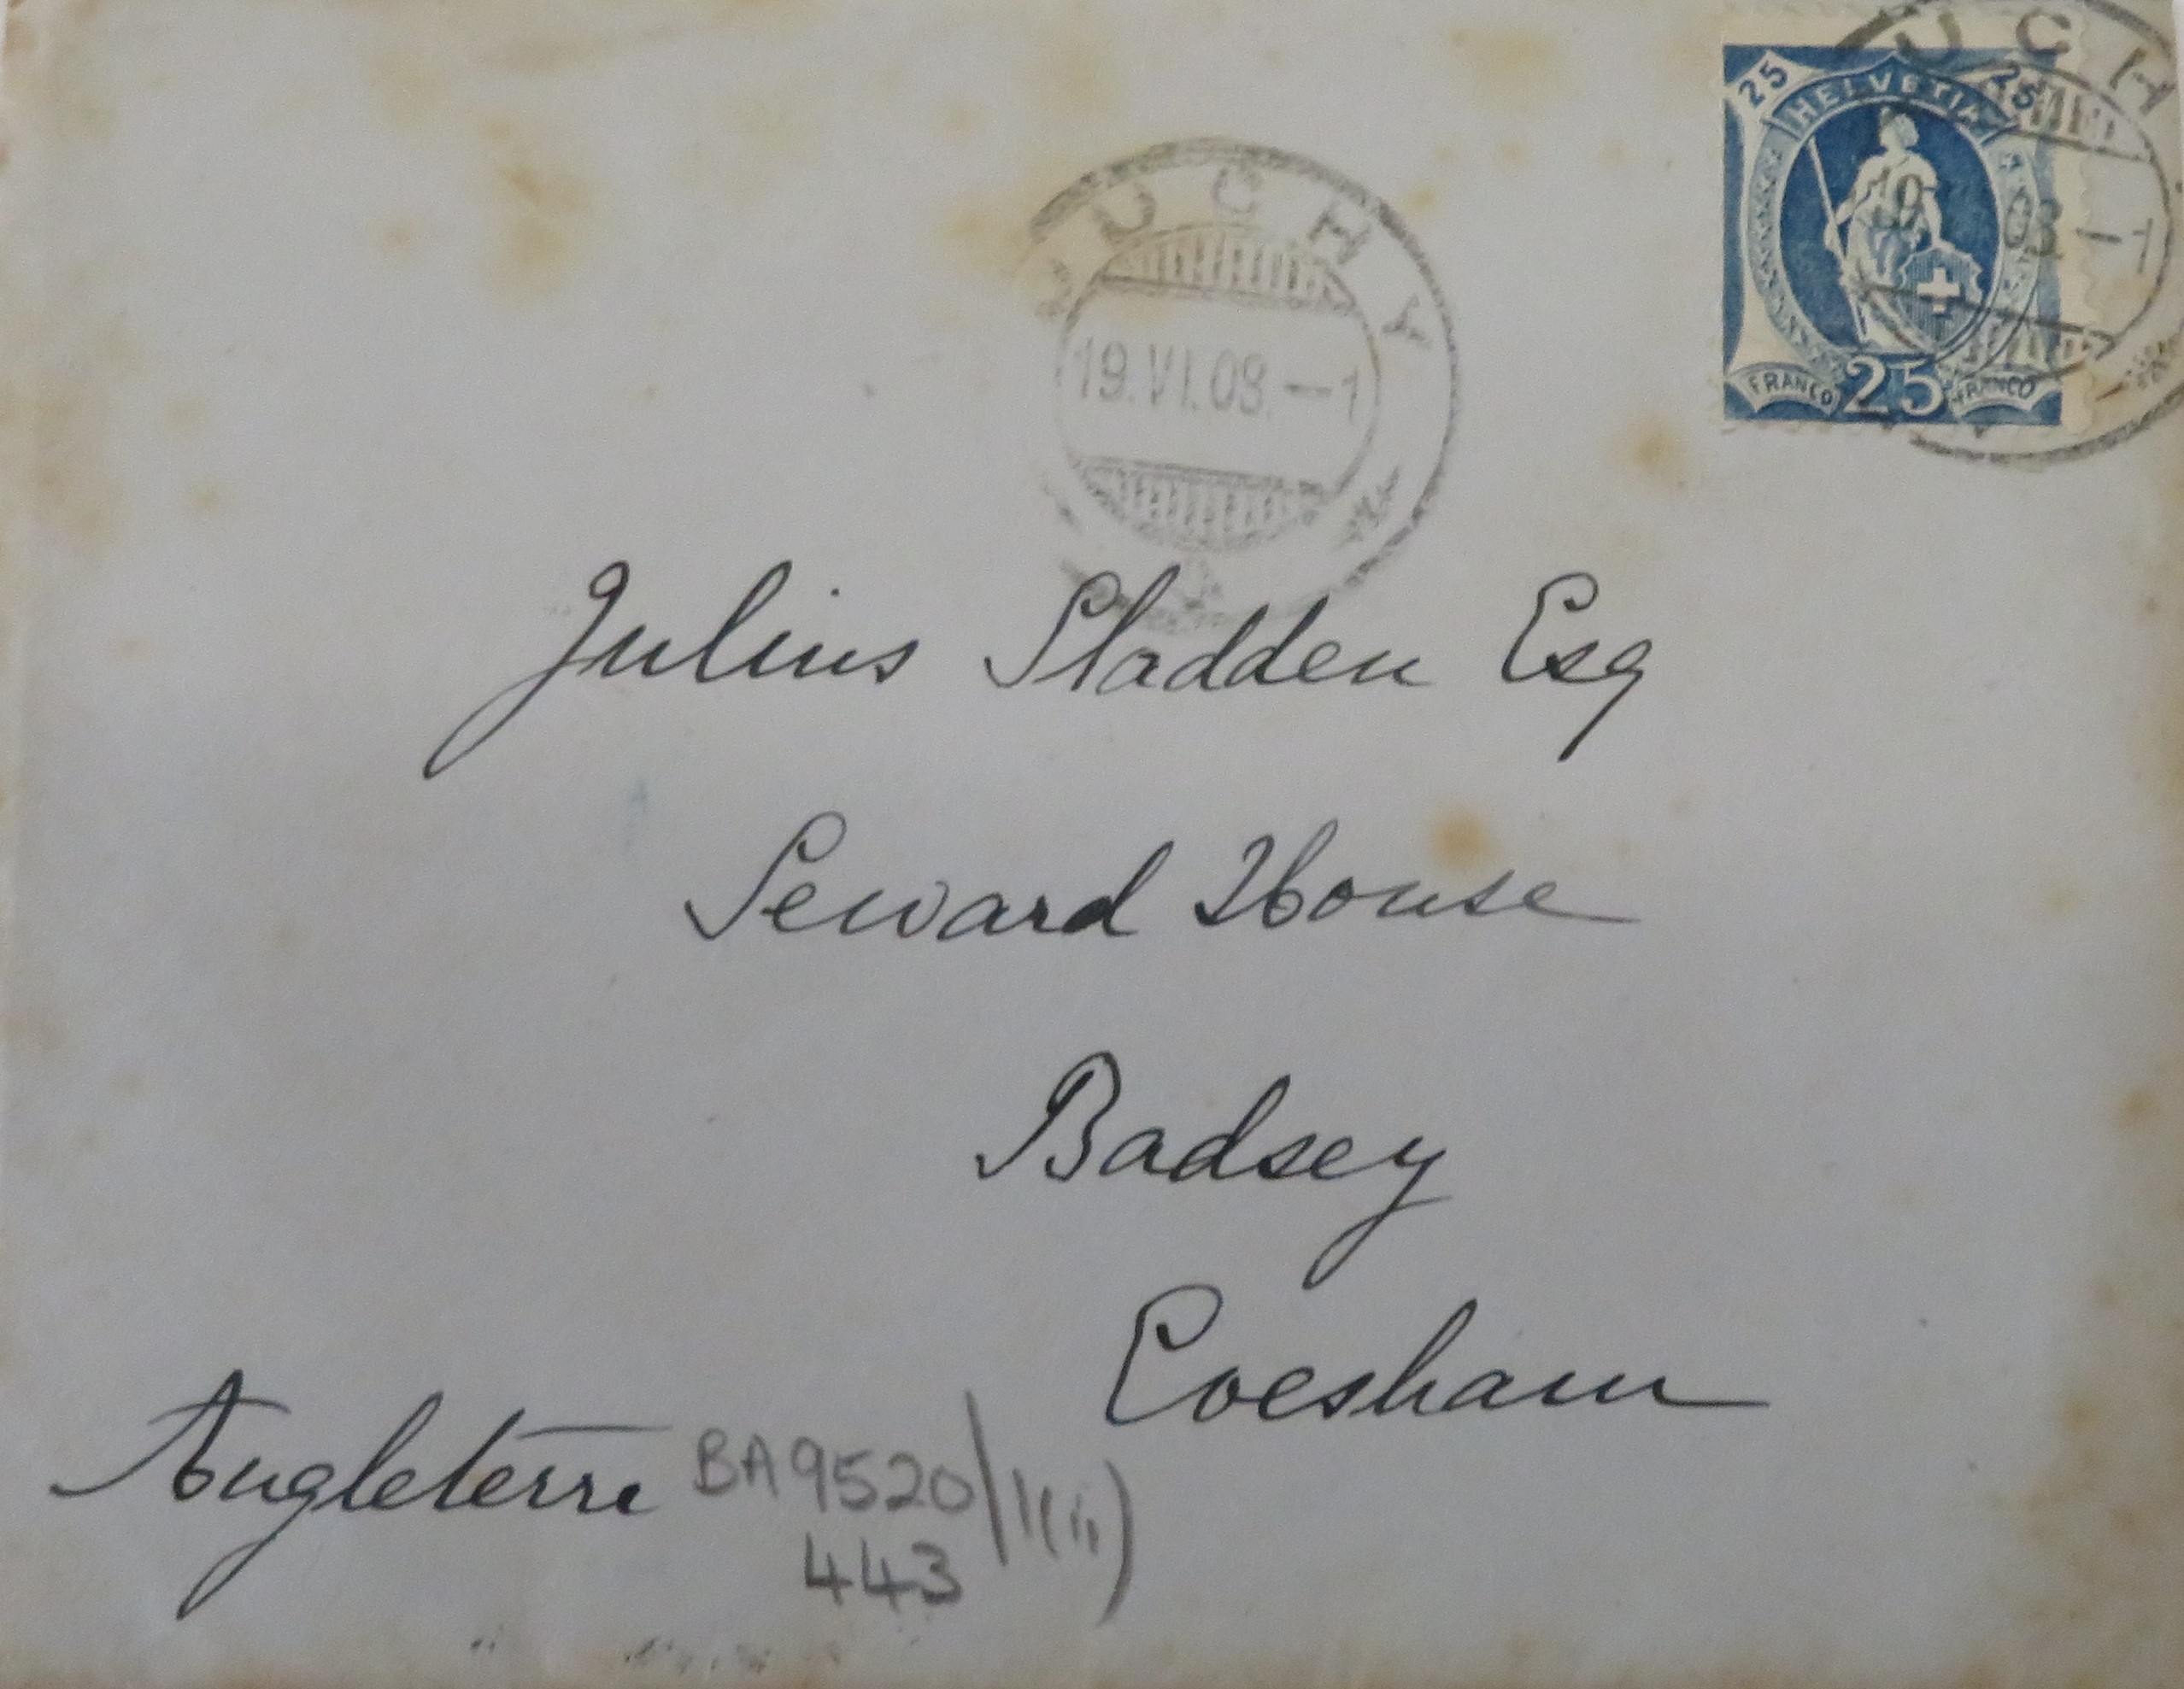 25 HELVETIA 25
FRANCO 25 FRANCO
UCHY
19.VI.08.—1
Julius Sladden Esq
Seward House
Badsey
Evesham
Angleterre
BA9520/1(ii)
443